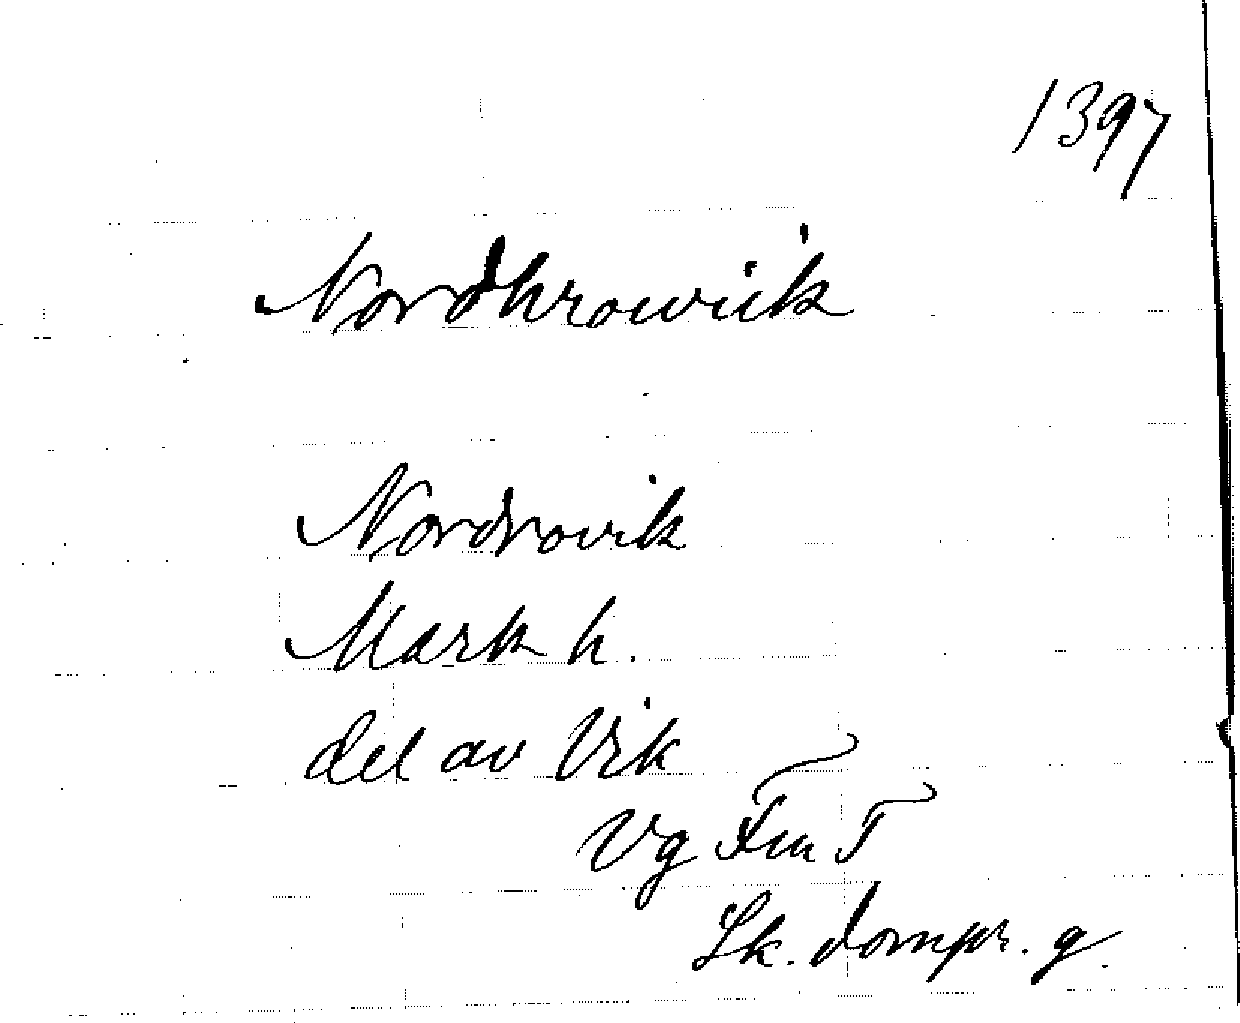 1397
Nordhrowiik
Nordrovik
Mark h.
del av Vik
Vg Fin T
Sk. dompr. g.